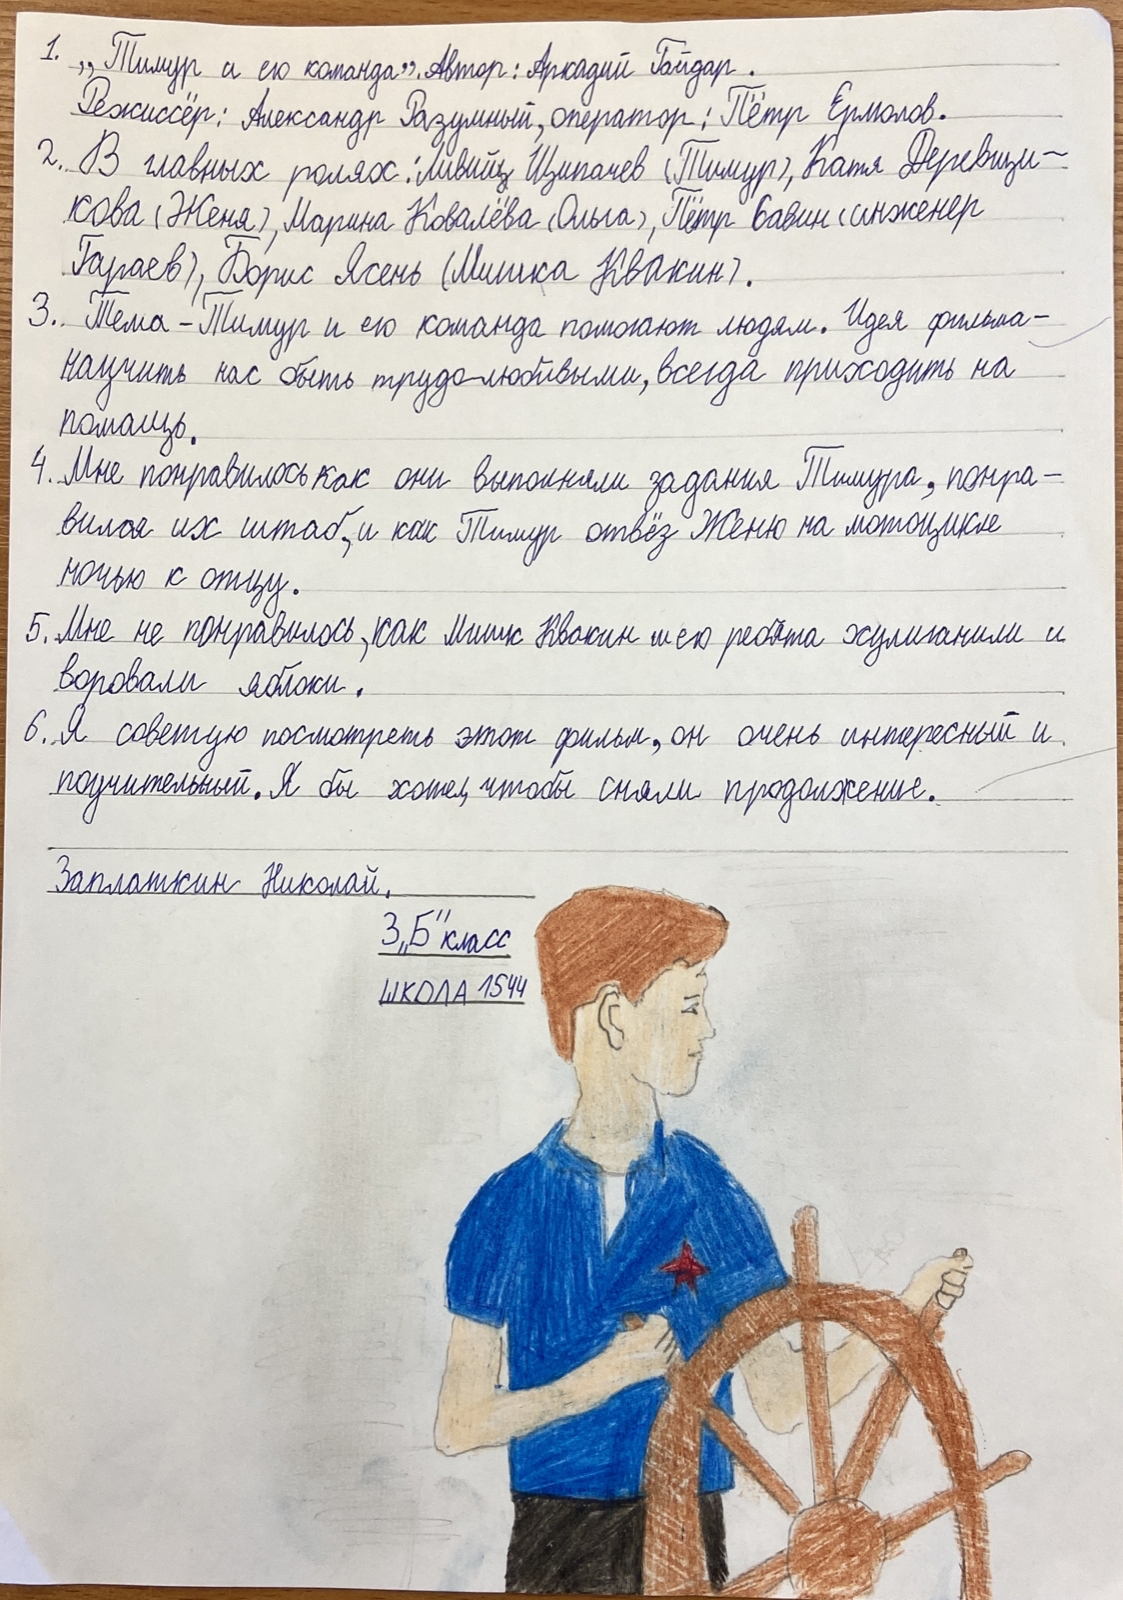 1. „Тимур и его команда”. Автор: Аркадий Гайдар.
Режиссёр: Александр Разумный, оператор: Пётр Ермолов.
2. В главных ролях: Ливий Щипачев (Тимур), Катя Деревщи-
кова (Женя), Марина Ковалёва (Ольга), Пётр Савин (инженер
Гараев), Борис Ясень (Мишка Квакин).
3. Тема - Тимур и его команда помогают людям. Идея фильма-
научить нас быть трудолюбивыми, всегда приходить на
помощь.
4. Мне понравилось как они выполняли задания Тимура, понра-
вился их штаб, и как Тимур отвёз Женю на мотоцикле
ночью к отцу.
5. Мне не понравилось, как Мишк Квакин и его ребята хулиганили и
воровали яблоки.
6. Я советую посмотреть этот фильм, он очень интересный и
поучительный. Я бы хотел, чтобы сняли продолжение.
Заплаткин Николай.
3 „Б” класс
ШКОЛА 1544